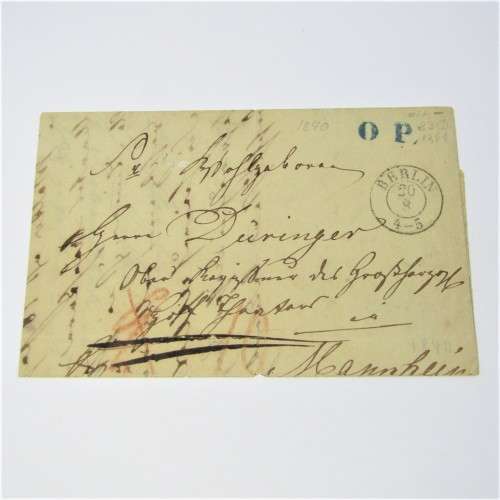 1840
O P
BERLIN
20
8
4-5
Sr Wohlgeboren
Herrn Düringer
Ober Regisseur des Großherzogl
Hof Theaters
in
Mannheim